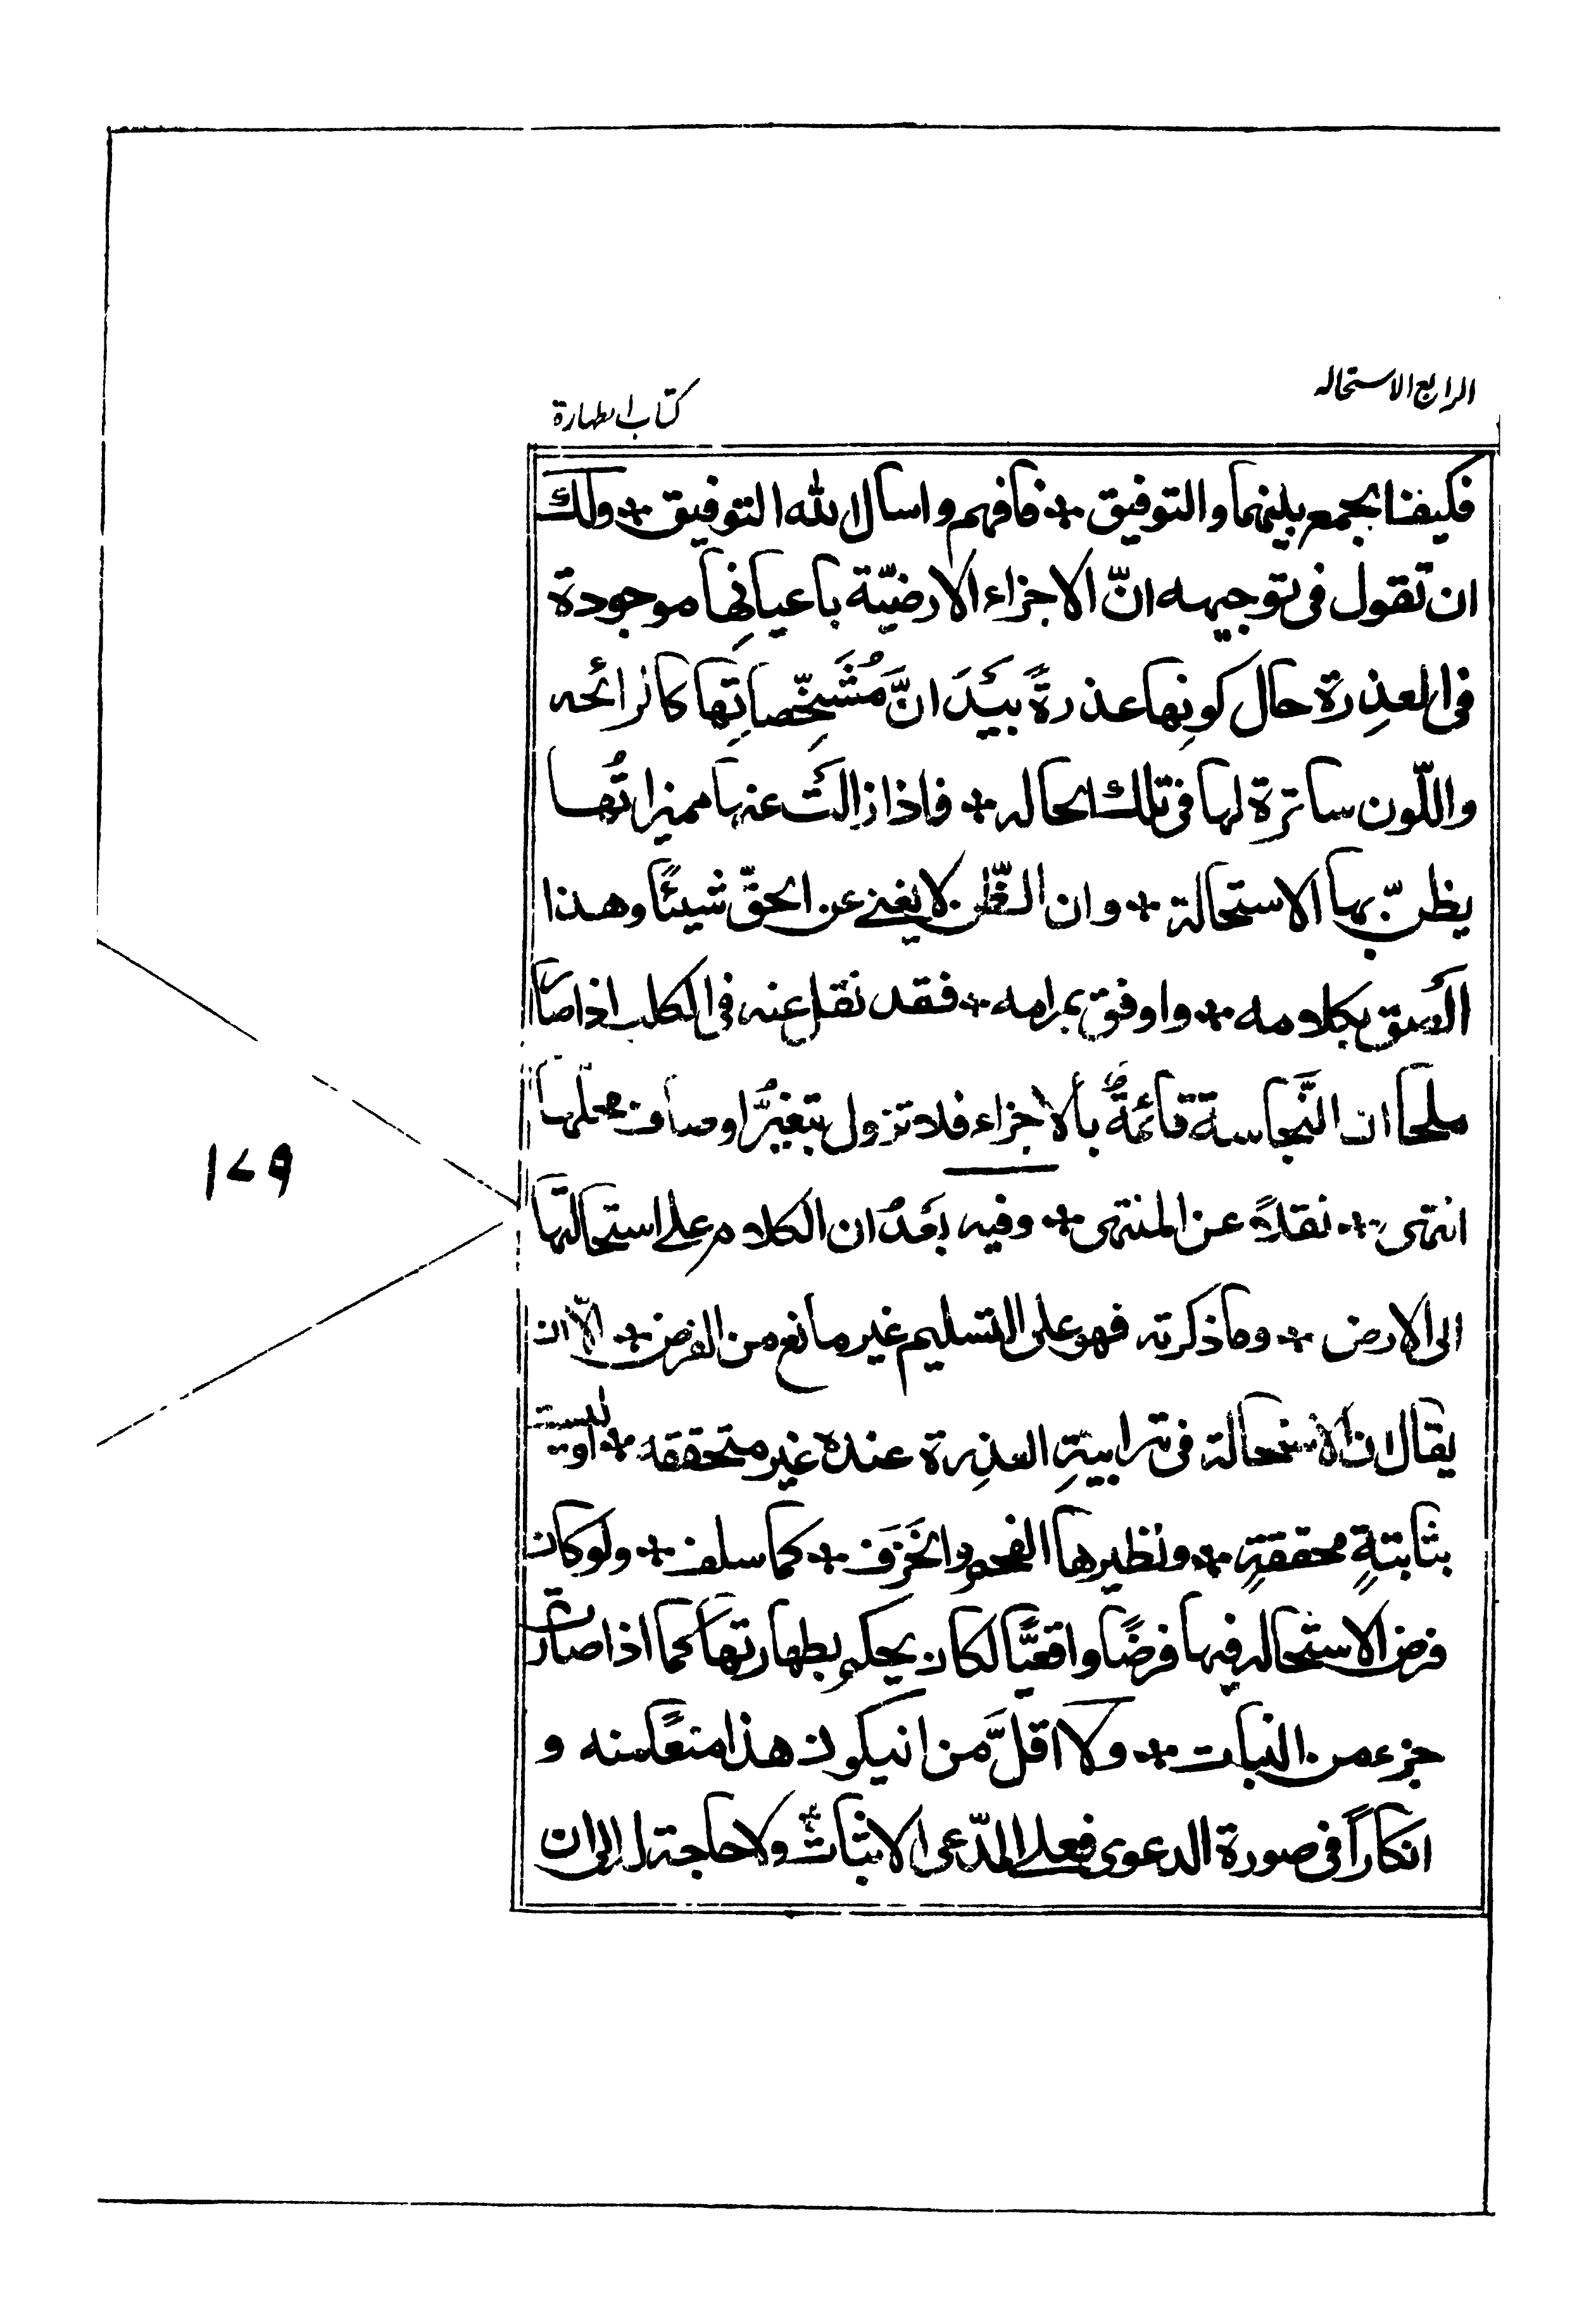 الرابع الاستحاله
كتاب الطهارة
فكيف نا لجمع بينهما والتوفيق * فافهم واسال الله التوفيق * ولك
ان تقول فى توجيهه انّ الاجزاء الارضيّة باعيانِها موجودة
فى العذِرة حال كونِها عذرةً بيَدَ انَّ مُشَخِّصاتِها كالرائحه
واللّون ساترة لها فى تلك الحاله * فاذا زالَت عنها مميزاتُها
يظنّ بها الاستحالة * وان الظّن لا يغنى عن الحقّ شيئًا وهذا
اَلصق بكلامه * واوفق بمرامه * فقد نقل عنه فى الكلب اذا صار
ملحا ان النَّجاسة قائمةٌ بالاجزاء فلا تزول بتغيُّر اوصاف محلها
انتهى * نقلاً عن المنتهى * وفيه بَعدُ ان الكلام على استحالتها
الى الارض * وما ذكرته فهو على التسليم غير مانع من الفرض * الّا ان
يقال ان الاستحالة فى ترابيةِ العذِرة عنده غير متحققة * او ليست
بثابتةٍ محققةٍ * ونظيرها الفحم والخَزَف * كما سلف * ولو كان
فرض الاستحاله فيها فرضًا واقعيًّا لكان يحكم بطهارتها كما اذا صارت
جزء من النبات * ولا اقلَّ من انيكون هذا منعًا منه و
انكاراً فى صورة الدعوى فعلى المدّعى الاثبات ولا حاجة له الى ان
١٧٩